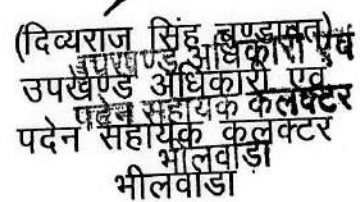 (दिव्यराज सिंह चुण्डावत)
उपखण्ड अधिकारी एवं
उपखण्ड अधिकारी एवं
पदेन सहायक कलेक्टर
पदेन सहायक कलक्टर
भीलवाड़ा
भीलवाडा